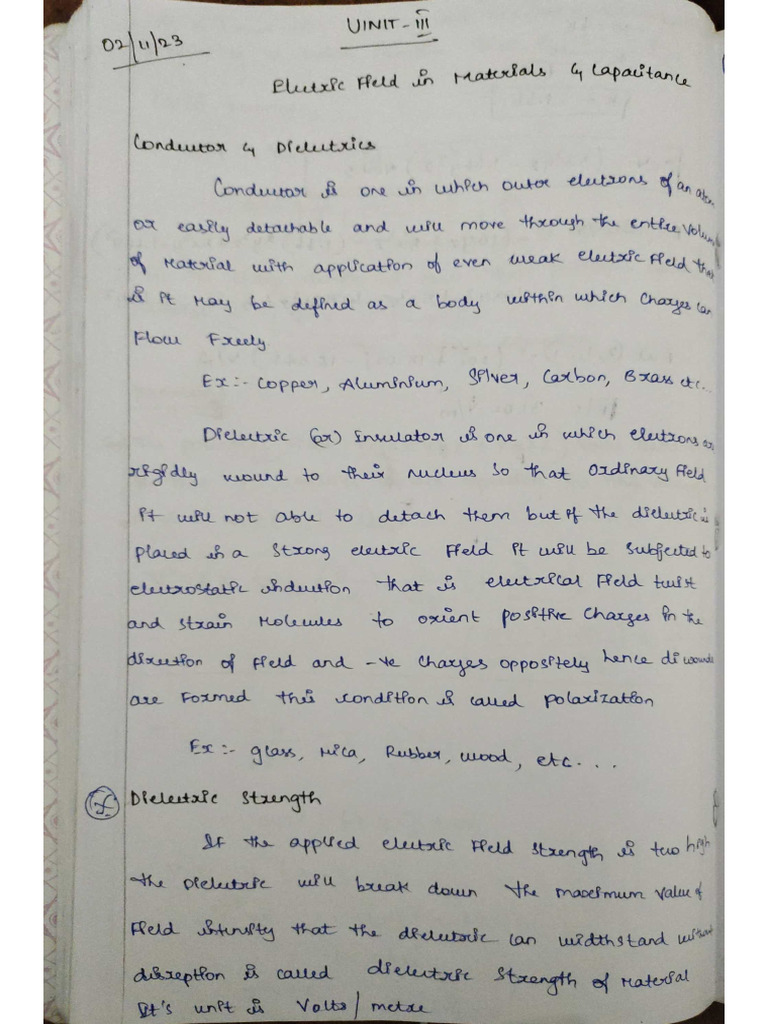 02/11/23
UINIT-III
Electric Field in Materials & Capacitance
Conductor & Dielectrics
Conductor is one in which outer electrons of an atom
or easily detachable and will move through the entire volume
of Material with application of even weak electric Field that
is it may be defined as a body within which charges can
Flow Freely
Ex:- Copper, Aluminium, Silver, Carbon, Brass etc..
Dielectric (or) Insulator is one in which electrons are
rigidly wound to their nucleus so that Ordinary Field
it will not able to detach them but if the dielectric is
placed in a Strong electric Field it will be subjected to
electrostatic induction that is electrical Field twist
and strain Molecules to orient positive charges in the
direction of Field and -ve charges oppositely hence
are Formed this condition is called polarization
Ex:- glass, Mica, Rubber, wood, etc...
Dielectric Strength
If the applied electric Field strength is two high
the Dielectric will break down the maximum value of
Field intensity that the dielectric can widthstand without
disreption is called dielectric Strength of Material
It's unit is Volts/metre